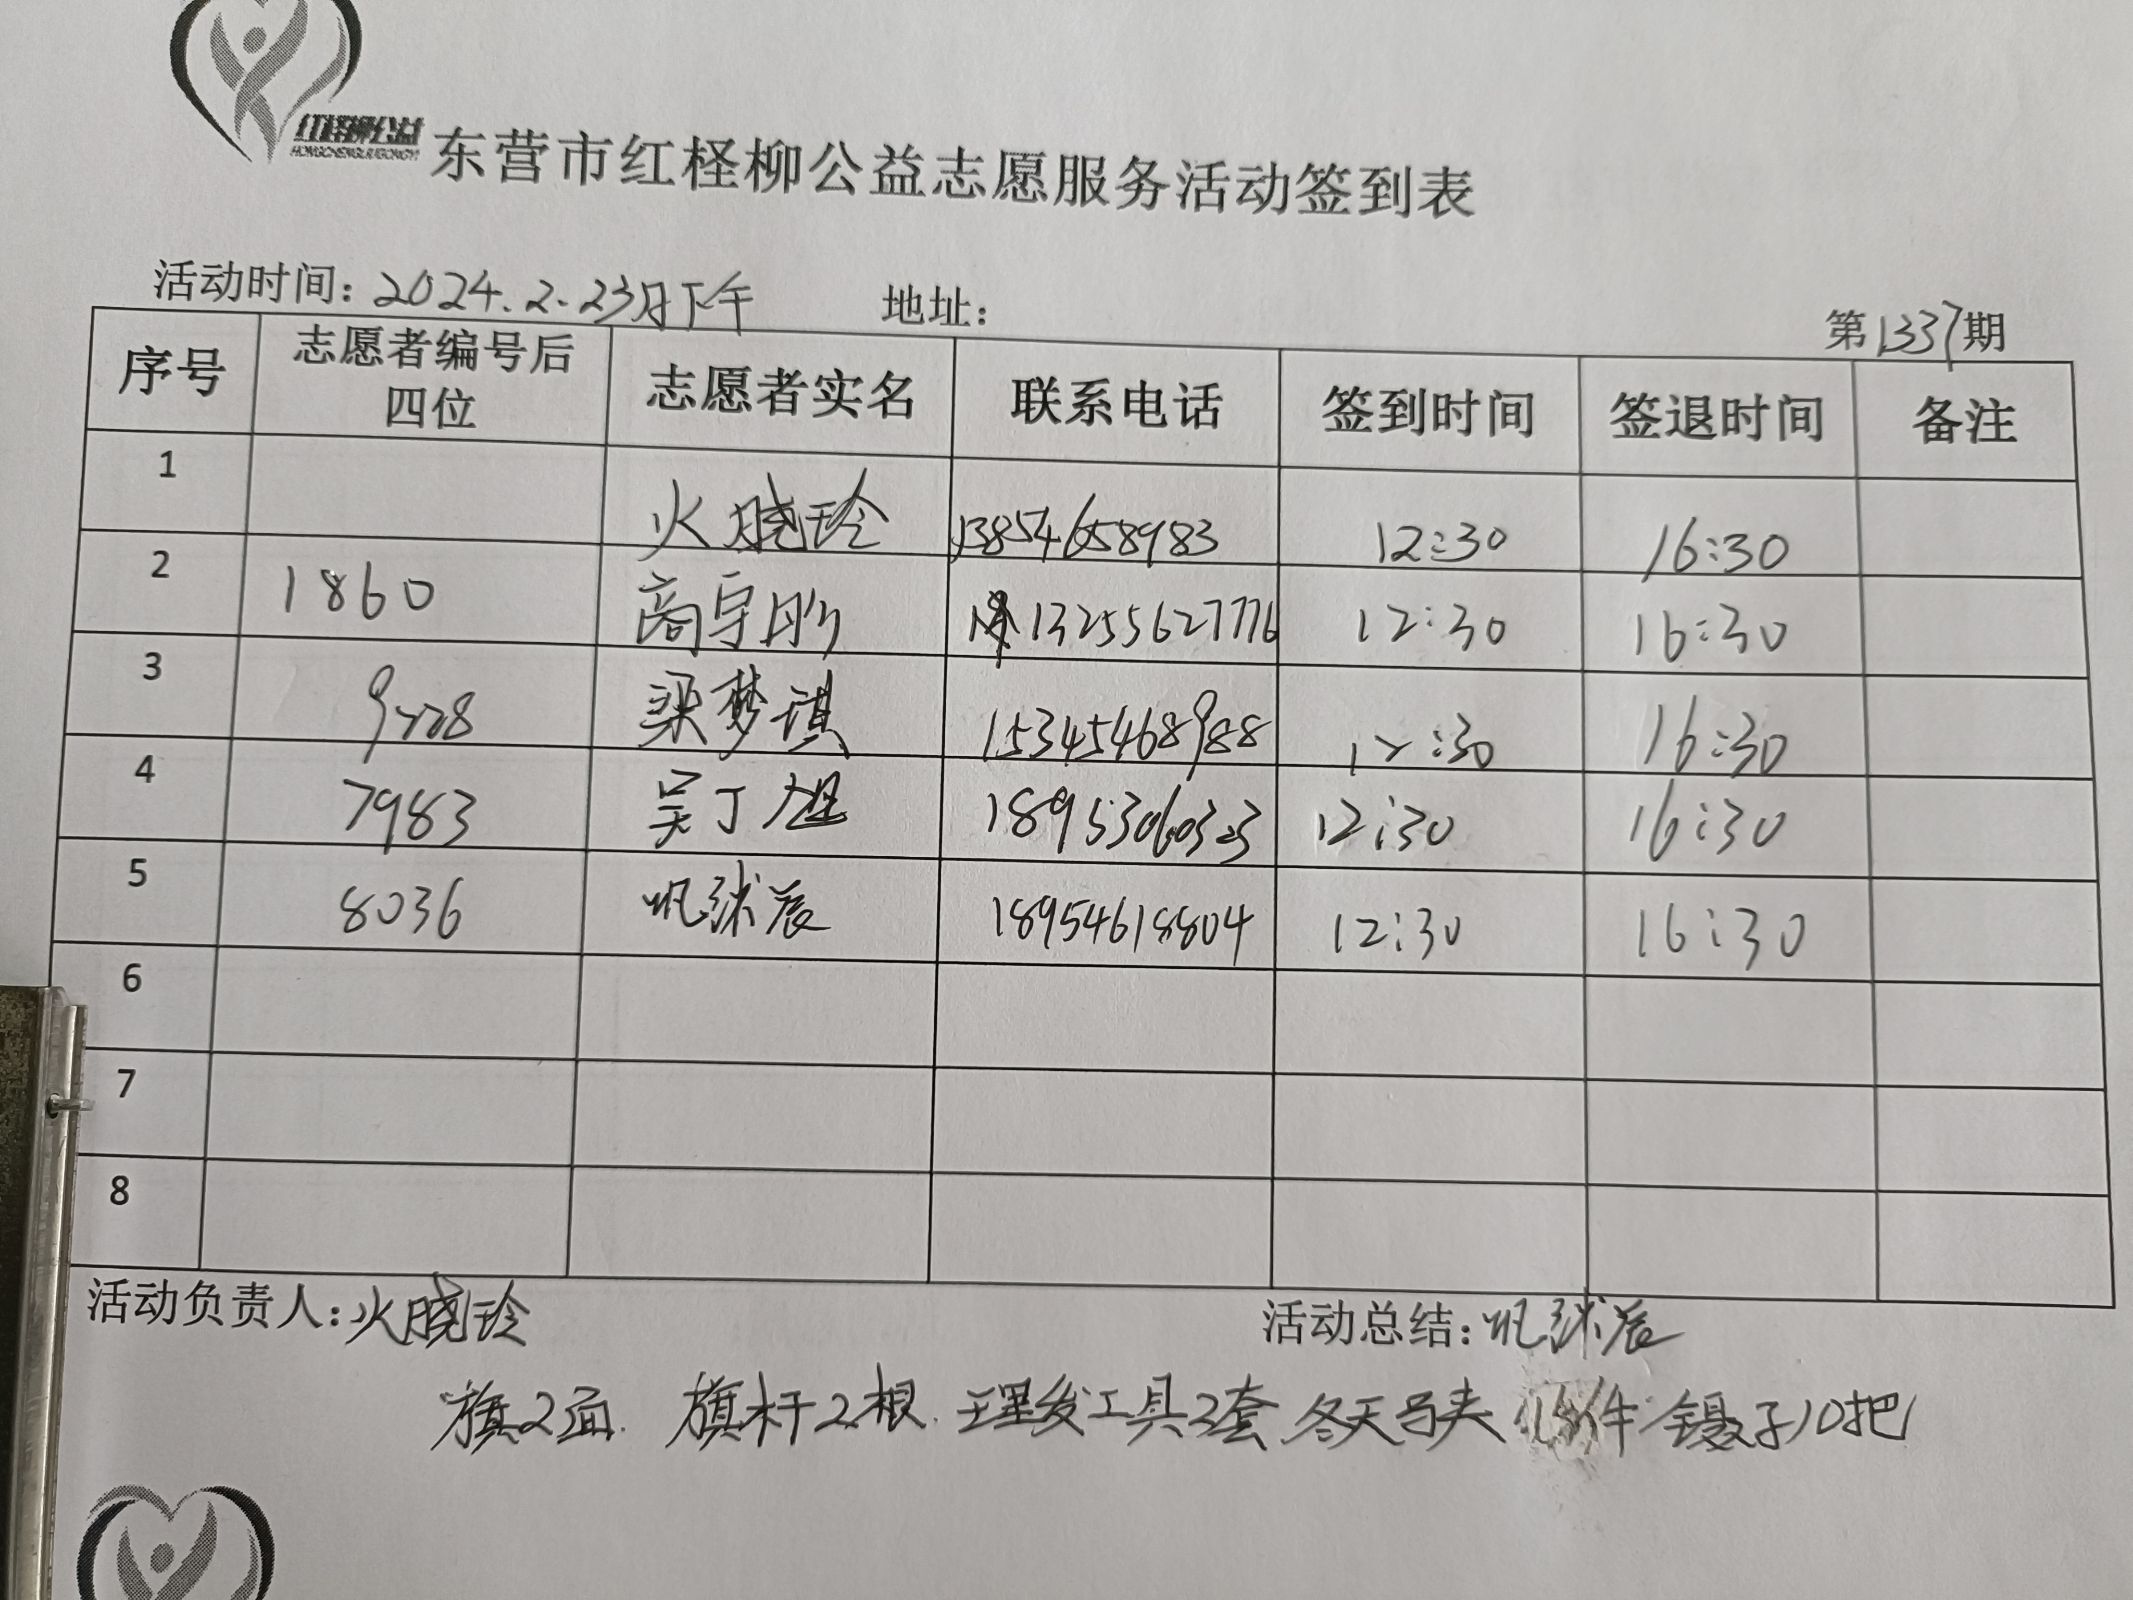 红柽柳公益
HONGCHENGLIUGONGYI
东营市红柽柳公益志愿服务活动签到表
活动时间：2024.2.23日下午 地址： 第1337期
序号 志愿者编号后四位 志愿者实名 联系电话 签到时间 签退时间 备注
1 火晓玲 13854658983 12:30 16:30
2 1860 商宇彤 13255627776 12:30 16:30
3 梁梦琪 15345468988 12:30 16:30
4 7983 吴丁旭 18953060323 12:30 16:30
5 8036 辰 18954618804 12:30 16:30
6
7
8
活动负责人：火晓玲 活动总结： 辰
旗2面. 旗杆2根. 理发工具2套 冬天马夹 件 镊子10把